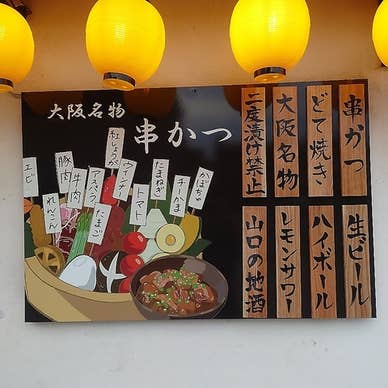 大阪名物
串かつ
エビ
れんこん
豚肉
牛肉
アスパラ
たまご
紅しょうが
ウィンナー
トマト
たまねぎ
チーかま
かぼちゃ
串かつ
どて焼き
大阪名物
二度漬け禁止
生ビール
ハイボール
レモンサワー
山口の地酒